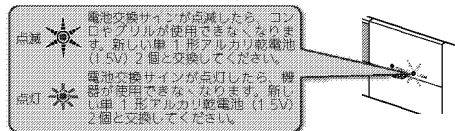 点滅
電池交換サインが点滅したら、コン
ロやグリルが使用できなくなりま
す。新しい単1形アルカリ乾電池
(1.5V) 2個と交換してください。
点灯
電池交換サインが点灯したら、機
器が使用できなくなります。新し
い単1形アルカリ乾電池(1.5V)
2個と交換してください。